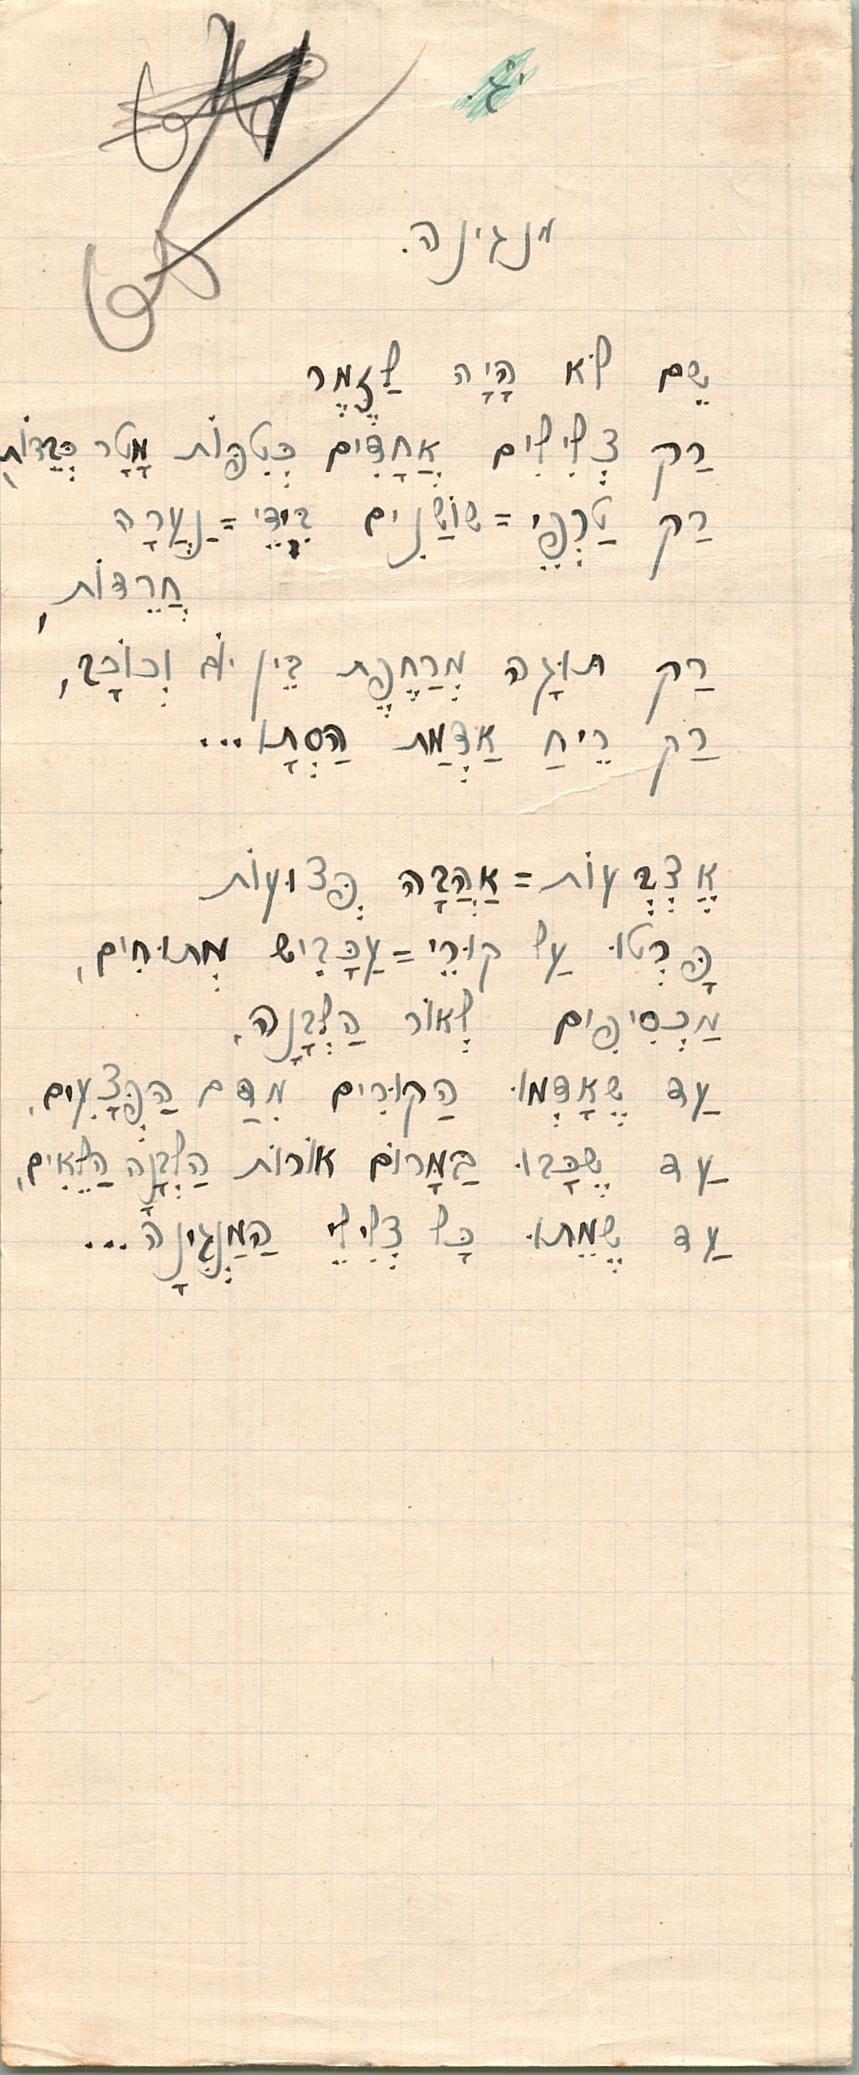 י"ג.
מנגינה.
שָׁם לֹא הָיָה לַזֶּמֶר
רַק צְלִילִים אֲחָדִים כְּטִפּוֹת מָטָר כְּבֵדוֹת,
רַק טַרְפֵּי=שׁוֹשַׁנִים בִּידֵי=נַעֲרָה
חֲרֵדוֹת,
רַק תּוּגָה מְרַחֶפֶת בֵּין יוֹם וְכוֹכָב,
רַק רֵיחַ אַדְמַת הַסְּתָו...
אֶצְבְּעוֹת=אַהֲבָה פְּצוּעוֹת
פָּרְטוּ עַל קוּרֵי=עַכָּבִישׁ מְתוּחִים,
מַכְסִיפִים לְאוֹר הַלְּבָנָה,
עַד שֶׁאָדְמוּ הַקּוּרִים מִדַּם הַפְּצָעִים,
עַד שֶׁכָּבוּ בַּמָּרוֹם אוֹרוֹת הַלְּבָנָה הַלֵּאִים,
עַד שֶׁמֵּתוּ כָּל צְלִילֵי הַמַּנְגִּינָה...